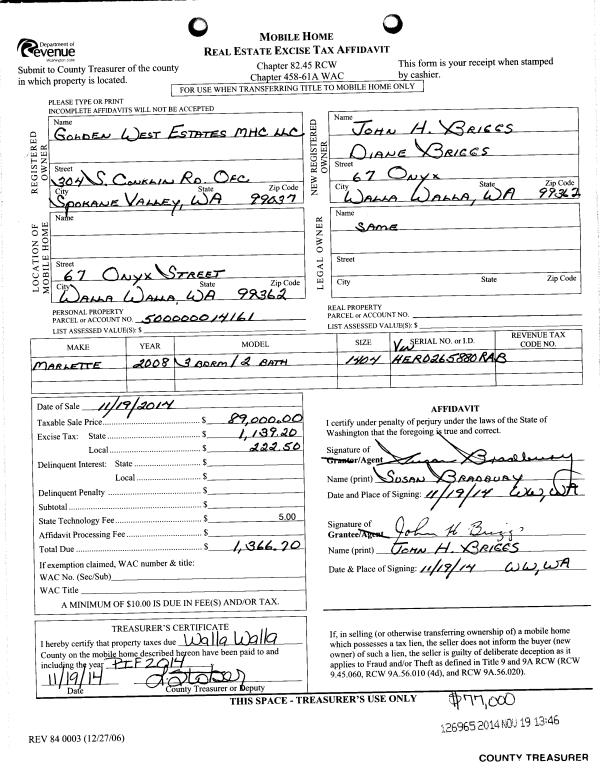 Department of
Revenue
Washington State
MOBILE HOME
REAL ESTATE EXCISE TAX AFFIDAVIT
Submit to County Treasurer of the county
in which property is located.
Chapter 82.45 RCW
Chapter 458-61A WAC
This form is your receipt when stamped
by cashier.
FOR USE WHEN TRANSFERRING TITLE TO MOBILE HOME ONLY
PLEASE TYPE OR PRINT
INCOMPLETE AFFIDAVITS WILL NOT BE ACCEPTED
REGISTERED OWNER
Name
GOLDEN WEST ESTATES MHC LLC
Street
304 S. CONKLIN RD. OFC
City State Zip Code
SPOKANE VALLEY, WA 99037
NEW REGISTERED OWNER
Name
JOHN H. BRIGGS
DIANE BRIGGS
Street
67 ONYX
City State Zip Code
WALLA WALLA, WA 99362
LOCATION OF MOBILE HOME
Name
Street
67 ONYX STREET
City State Zip Code
WALLA WALLA, WA 99362
LEGAL OWNER
Name
SAME
Street
City State Zip Code
PERSONAL PROPERTY
PARCEL or ACCOUNT NO. 500000014161
LIST ASSESSED VALUE(S): $
REAL PROPERTY
PARCEL or ACCOUNT NO.
LIST ASSESSED VALUE(S): $
MAKE YEAR MODEL SIZE VIN SERIAL NO. or I.D. REVENUE TAX CODE NO.
MARLETTE 2008 3 BDRM/2 BATH 1404 HERO265880RAB
Date of Sale 11/19/2014
Taxable Sale Price $ 89,000.00
Excise Tax: State $ 1,139.20
Local $ 222.50
Delinquent Interest: State $
Local $
Delinquent Penalty $
Subtotal $
State Technology Fee $ 5.00
Affidavit Processing Fee $
Total Due $ 1,366.70
If exemption claimed, WAC number & title:
WAC No. (Sec/Sub)
WAC Title
A MINIMUM OF $10.00 IS DUE IN FEE(S) AND/OR TAX.
AFFIDAVIT
I certify under penalty of perjury under the laws of the State of
Washington that the foregoing is true and correct.
Signature of
Grantor/Agent Susan Bradbury
Name (print) SUSAN BRADBURY
Date and Place of Signing: 11/19/14 WW, WA
Signature of
Grantee/Agent John H Briggs
Name (print) JOHN H. BRIGGS
Date & Place of Signing: 11/19/14 WW, WA
TREASURER'S CERTIFICATE
I hereby certify that property taxes due Walla Walla
County on the mobile home described hereon have been paid to and
including the year PIF 2014
11/19/14
Date County Treasurer or Deputy
If, in selling (or otherwise transferring ownership of) a mobile home
which possesses a tax lien, the seller does not inform the buyer (new
owner) of such a lien, the seller is guilty of deliberate deception as it
applies to Fraud and/or Theft as defined in Title 9 and 9A RCW (RCW
9.45.060, RCW 9A.56.010 (4d), and RCW 9A.56.020).
THIS SPACE - TREASURER'S USE ONLY
$77,000
126965 2014 NOV 19 13:46
REV 84 0003 (12/27/06)
COUNTY TREASURER